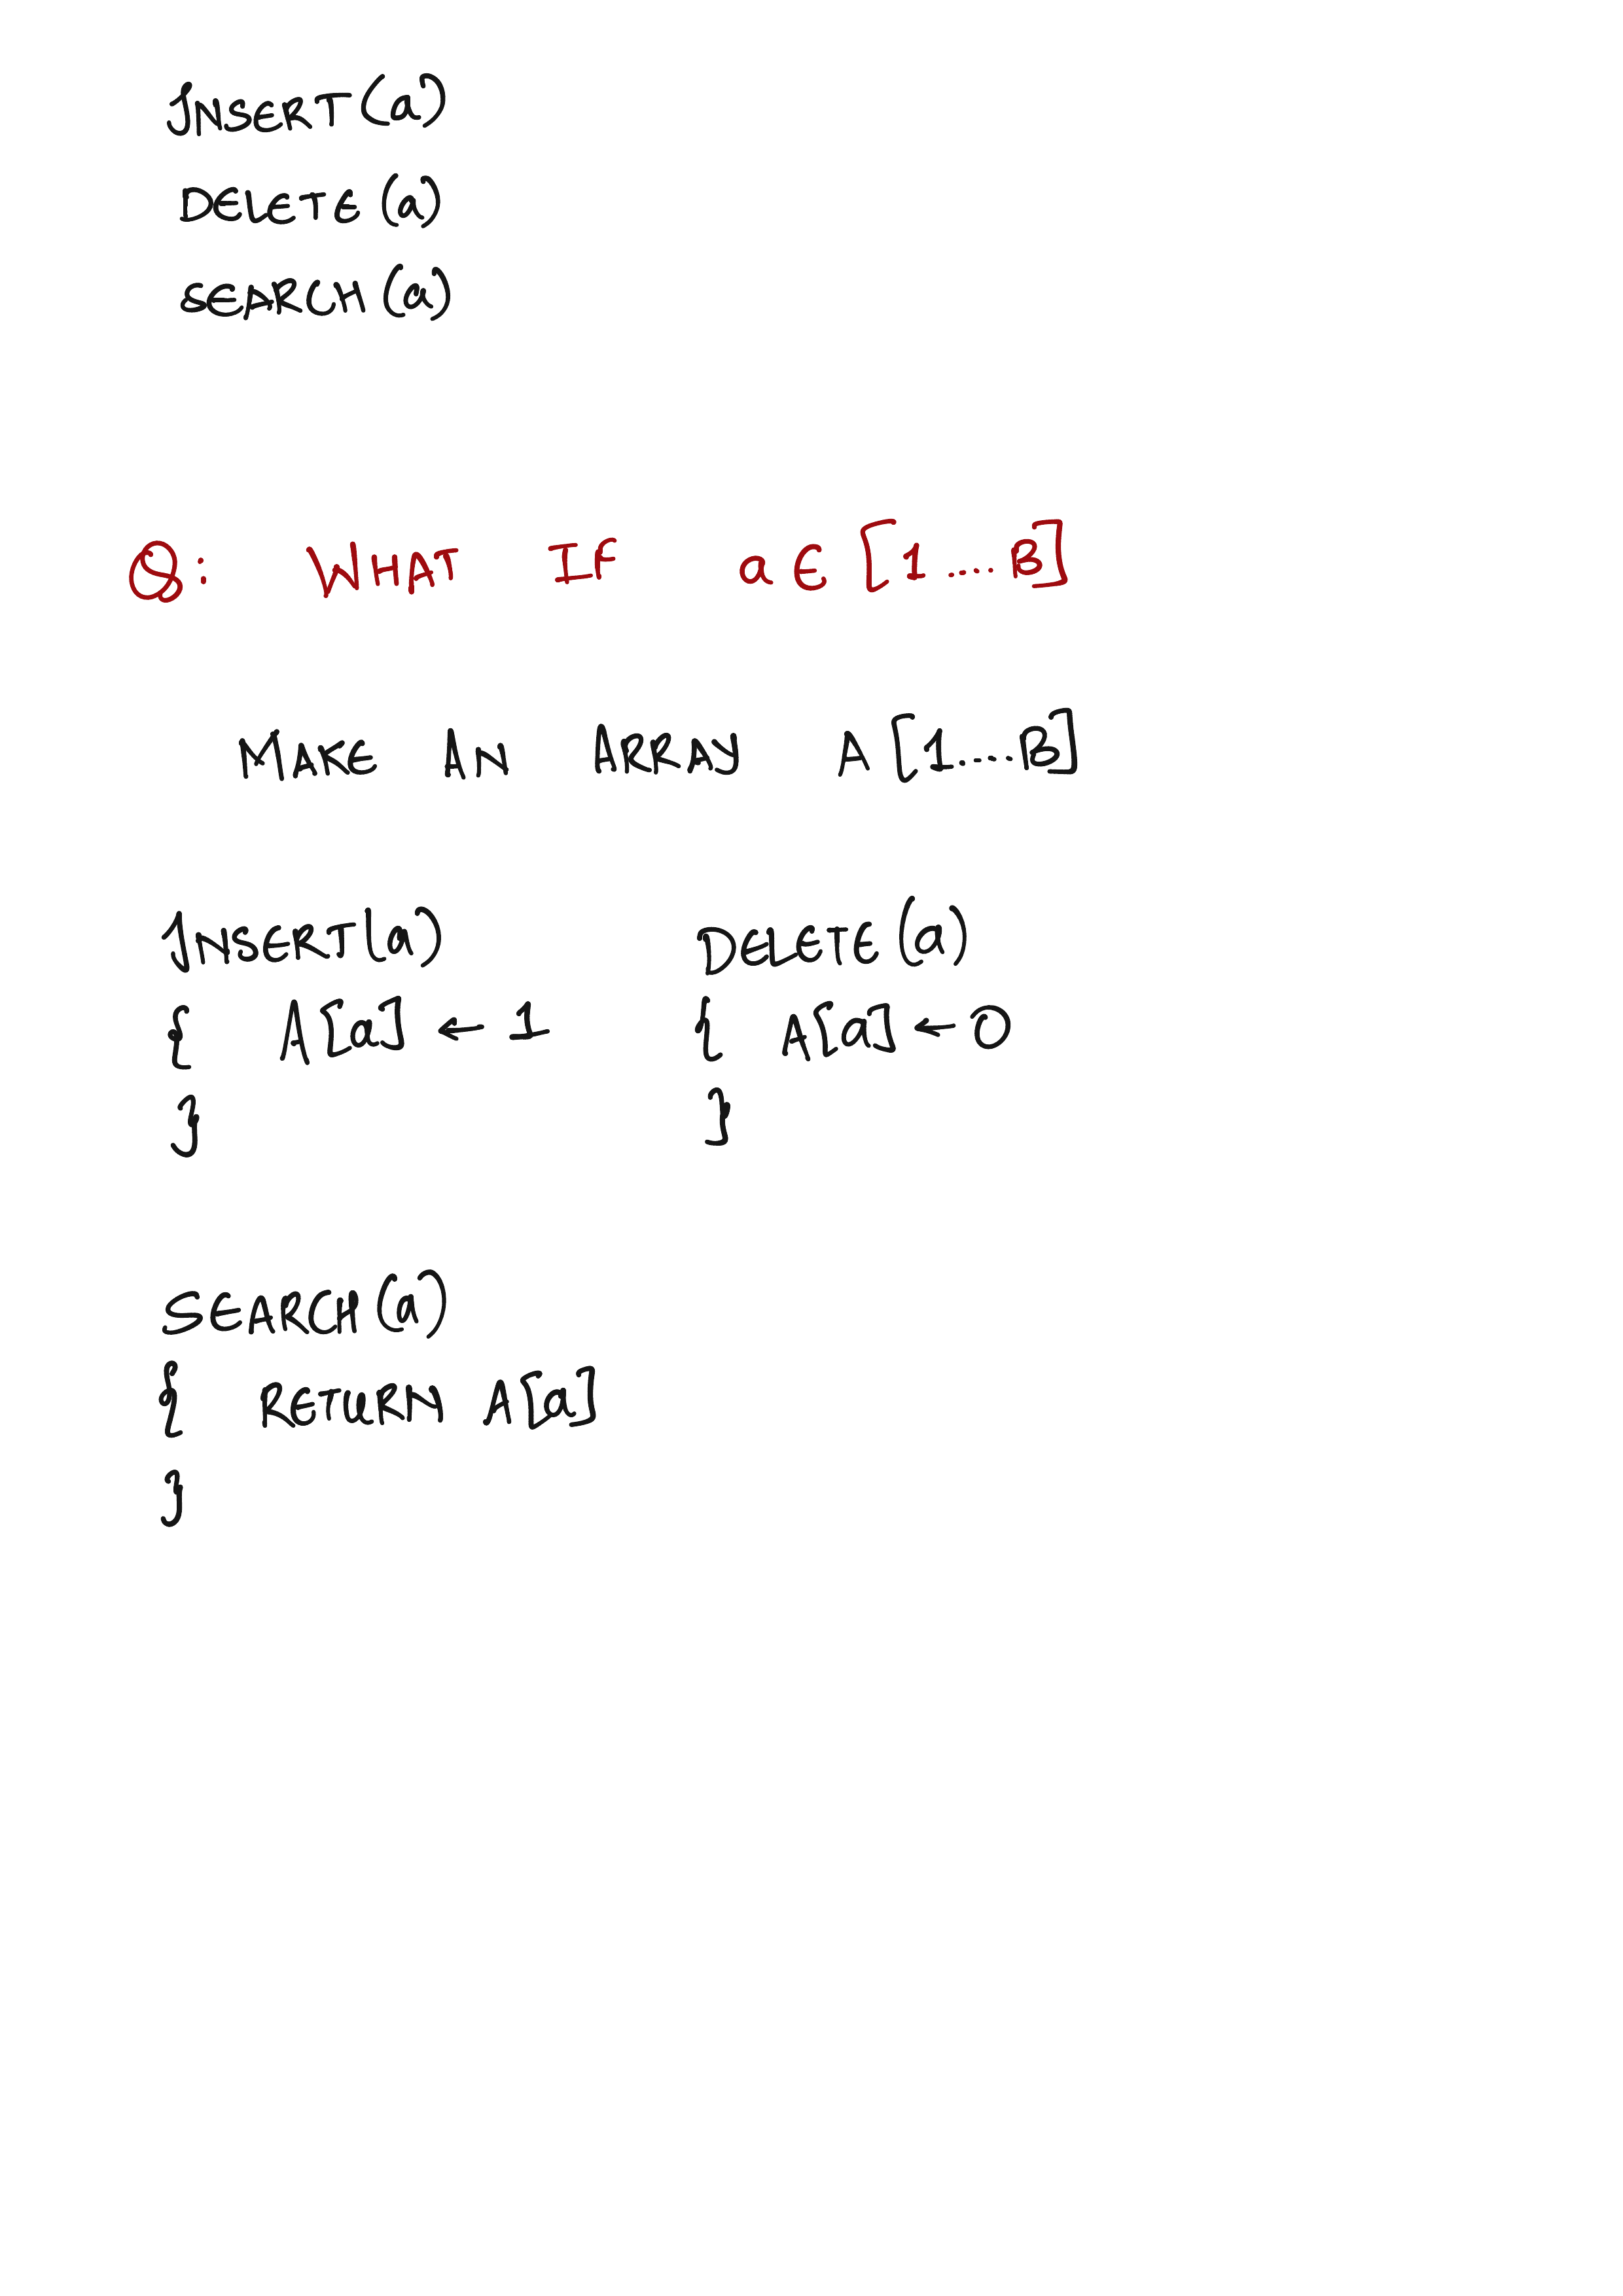 INSERT(a)
DELETE(a)
SEARCH(a)
Q: WHAT IF a ∈ [1....B]
MAKE AN ARRAY A[1....B]
INSERT(a) DELETE(a)
{ A[a] ← 1 { A[a] ← 0
} }
SEARCH(a)
{ RETURN A[a]
}